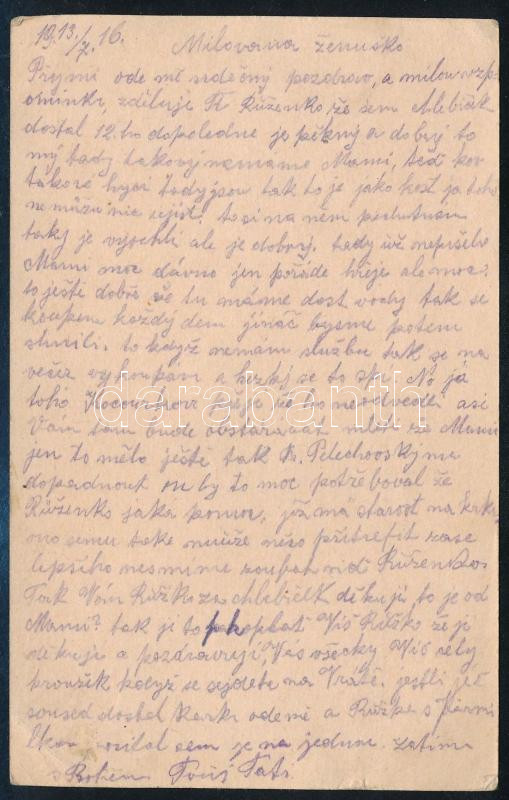 1913./7.16.
Milovana ženuško
Přijmi ode mě srdečný pozdrav, a milou vzp
ominku, zděluje Ti Růženko, že sem chlebíček
dostal 12.ho dopoledne je pěkný a dobrý to
my tady takový nemáme Mami, teď
takové tady jsou tak to je jako kost ja toho
nemůžu nic sejíst. to si na něm pochutnam
taky je vyschlí ale je dobrý. tady už nepršelo
Mami moc dávno jen pořáde hřeje ale moc.
to ještě dobře že tu máme dost vody tak se
koupem každý den jináč bysme potem
shnili. to když nemám službu tak se na
večer vykoupám a hezky se to spí. No já
toho že to neodvedli asi
Vám tam bude Mami
jen to mělo ještě tak
dopadnout on by to moc potřeboval že
Růženko jaká pomoc, již má starost na krku
ono semu take muúže něco přitrefit zase
lepšího nesmíme zoufat viď Růženko.
Tak Vám Růžko za chlebíček děkuji, to je od
Mami? tak ji to oplatí Víš Růžko že ji
děkuje a pozdravuji, Vás všecky Víš celý
kroužek když se sejdete na Vrátě. jestli jéž
soused dostal kartu odemě a Růžka s
sem je na jednu. zatím
s Bohem Tvůj Táta.
darabanth